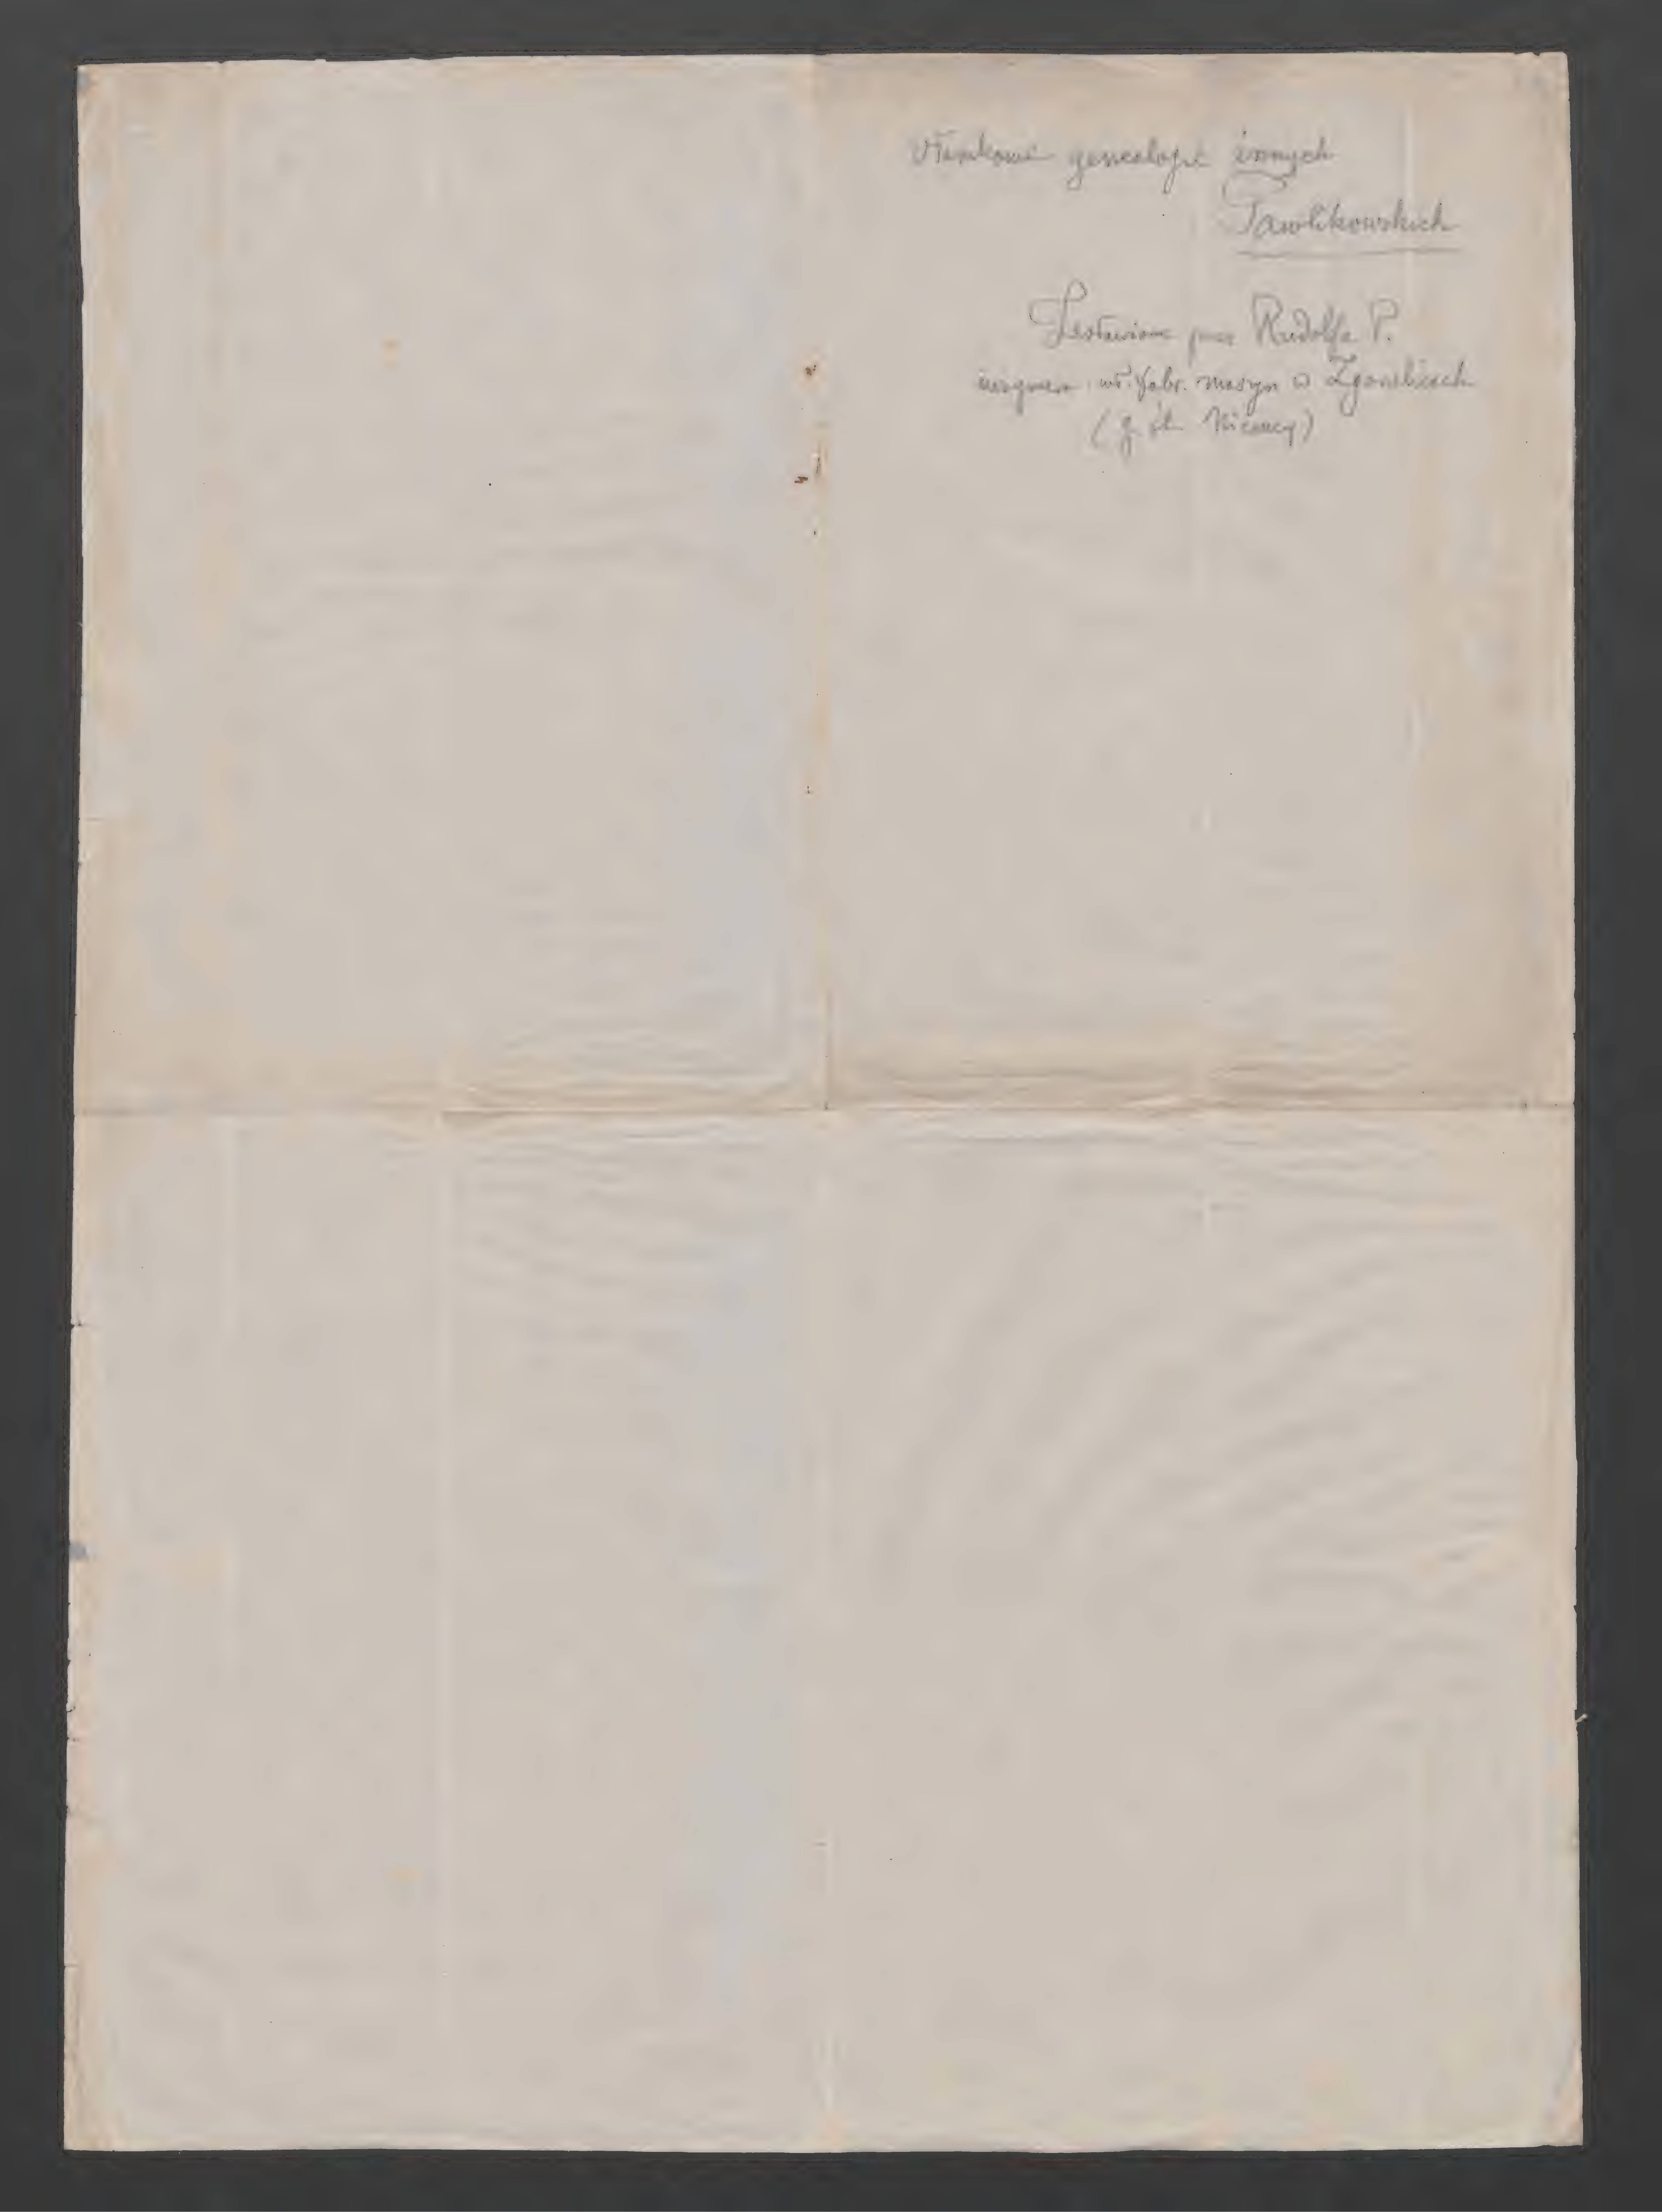 Ułamkowe genealogie innych
Pawlikowskich
Zestawione przez Rudolfa P.
inżyniera wł. fabr. maszyn w
(g. śl. Niemcy)